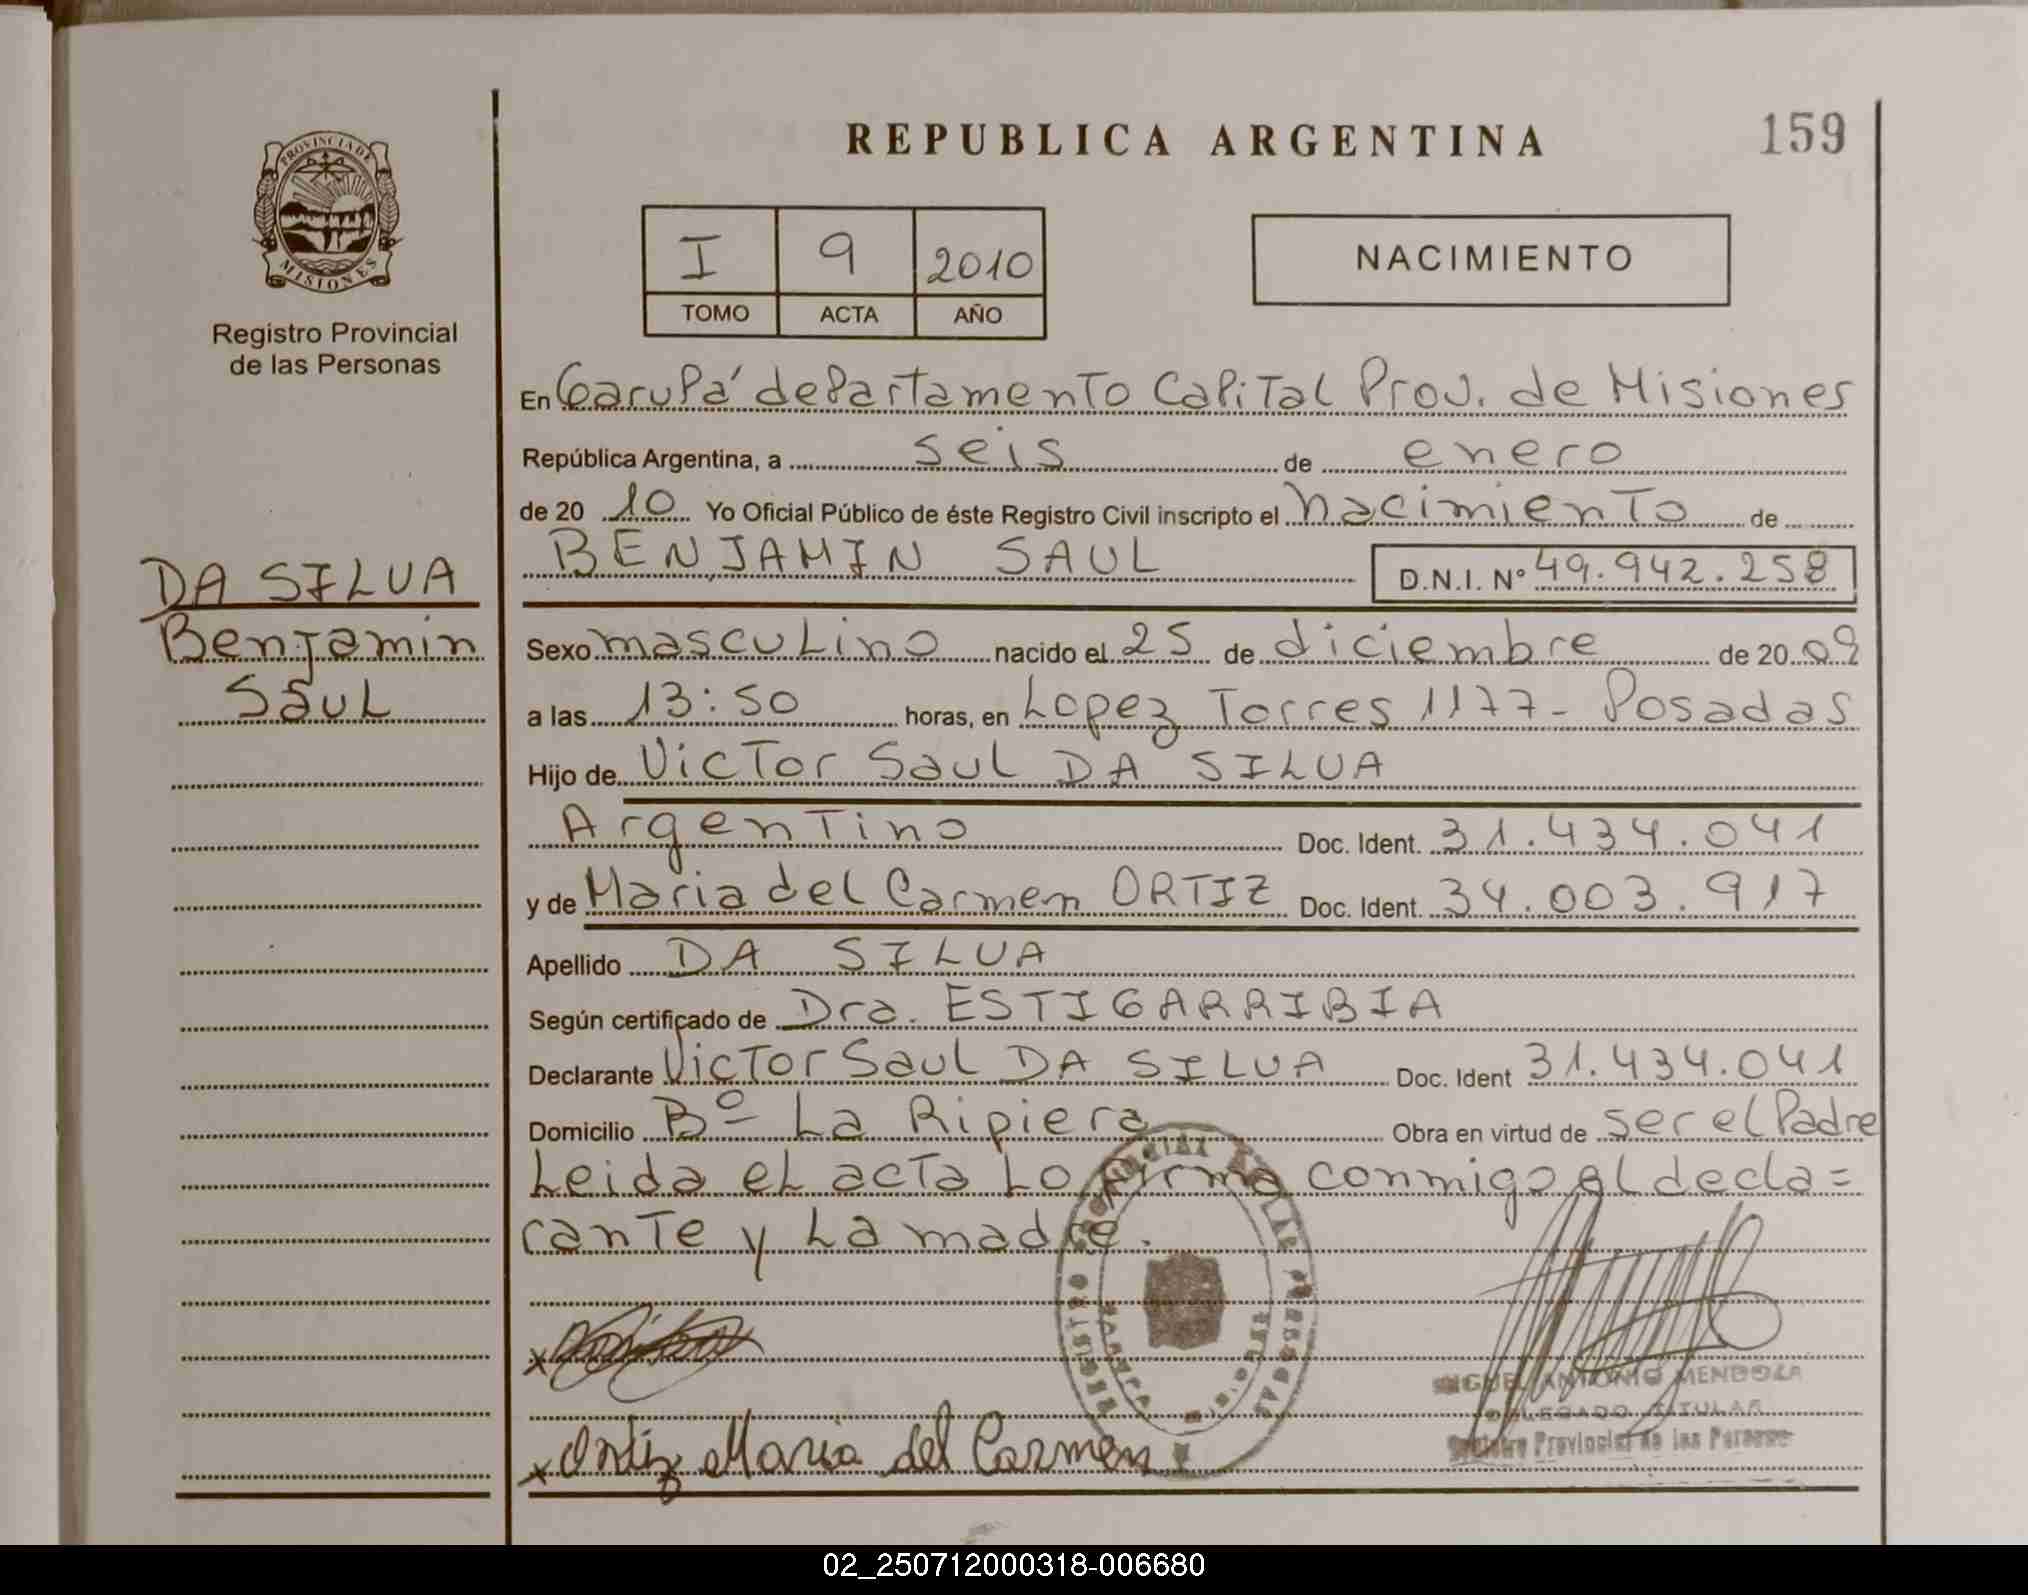 REPUBLICA ARGENTINA
159
PROVINCIA DE
MISIONES
Registro Provincial
de las Personas
I 9 2010
TOMO ACTA AÑO
NACIMIENTO
En Garupá departamento Capital Prov. de Misiones
República Argentina, a seis de enero
de 20 10 Yo Oficial Público de éste Registro Civil inscripto el nacimiento de
BENJAMIN SAUL D.N.I. Nº 49.942.258
DA SILVA
Benjamin
Saul
Sexo masculino nacido el 25 de diciembre de 20 09
a las 13:50 horas, en Lopez Torres 1177 - Posadas
Hijo de Victor Saul DA SILVA
Argentino Doc. Ident. 31.434.041
y de Maria del Carmen ORTIZ Doc. Ident. 34.003.917
Apellido DA SILVA
Según certificado de Dra. ESTIGARRIBIA
Declarante Victor Saul DA SILVA Doc. Ident 31.434.041
Domicilio Bº - La Ripiera Obra en virtud de ser el Padre
Leida el acta lo firma conmigo el decla=
rante y la madre.
MIGUEL ANTONIO MENDOZA
DELEGADO TITULAR
Registro Provincial de las Personas
x Ortiz Maria del Carmen
02_250712000318-006680